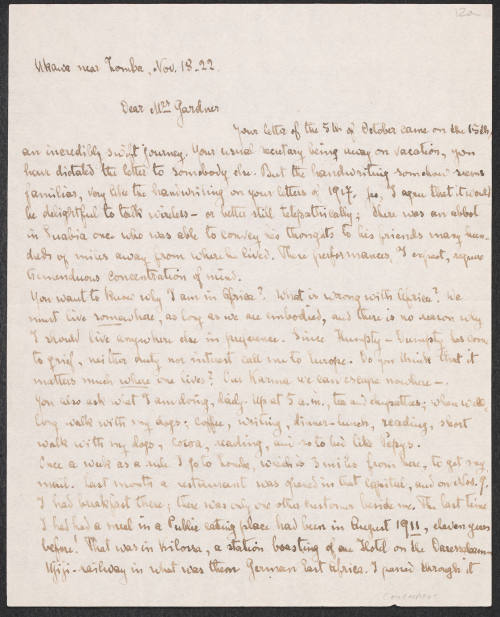 12a
Mkawa near Zomba, Nov. 18. 22.
Dear Mrs Gardner
Your letter of the 5th of October came on the 15th,
an incredibly swift journey. Your usual secretary being away on vacation, you
have dictated the letter to somebody else. But the handwriting somehow seems
familiar, very like the handwriting on your letters of 1917. Yes, I agree that it would
be delightful to talk wireless – or better still telepathically; there was an abbot
in once who was able to convey his thoughts to his friends many hun-
dreds of miles away from where he lived. These performances, I expect, require
tremenduous concentration of mind.
You want to know why I am in Africa? What is wrong with Africa? We
must live somewhere, as long as we are embodied, and there is no reason why
I should live anywhere else in preference. Since Humpty-Dumpty has come
to grief, neither duty nor interest call me to Europe. Do you think that it
matters much where one lives? Our Karma we can escape nowhere –.
You also ask what I am doing, daily. Up at 5 a.m., tea and cigarettes; when
long walk with my dogs; coffee, writing, dinner-lunch, reading, short
walk with my dogs, cocoa, reading, and so to bed like Pepys.
Once a week as a rule I go to Zomba, which is 3 miles from here, to get my
mail. Last month a restaurant was opened in that capital, and on Nov. 9.
I had breakfast there; there was only one other customer beside me. The last time
I had had a meal in a Public eating place had been in August 1911, eleven years
before! That was in Kilossa, a station boasting of one Hotel on the Daressalaam-
Ujiji-railway in what was then German East Africa. I passed through it